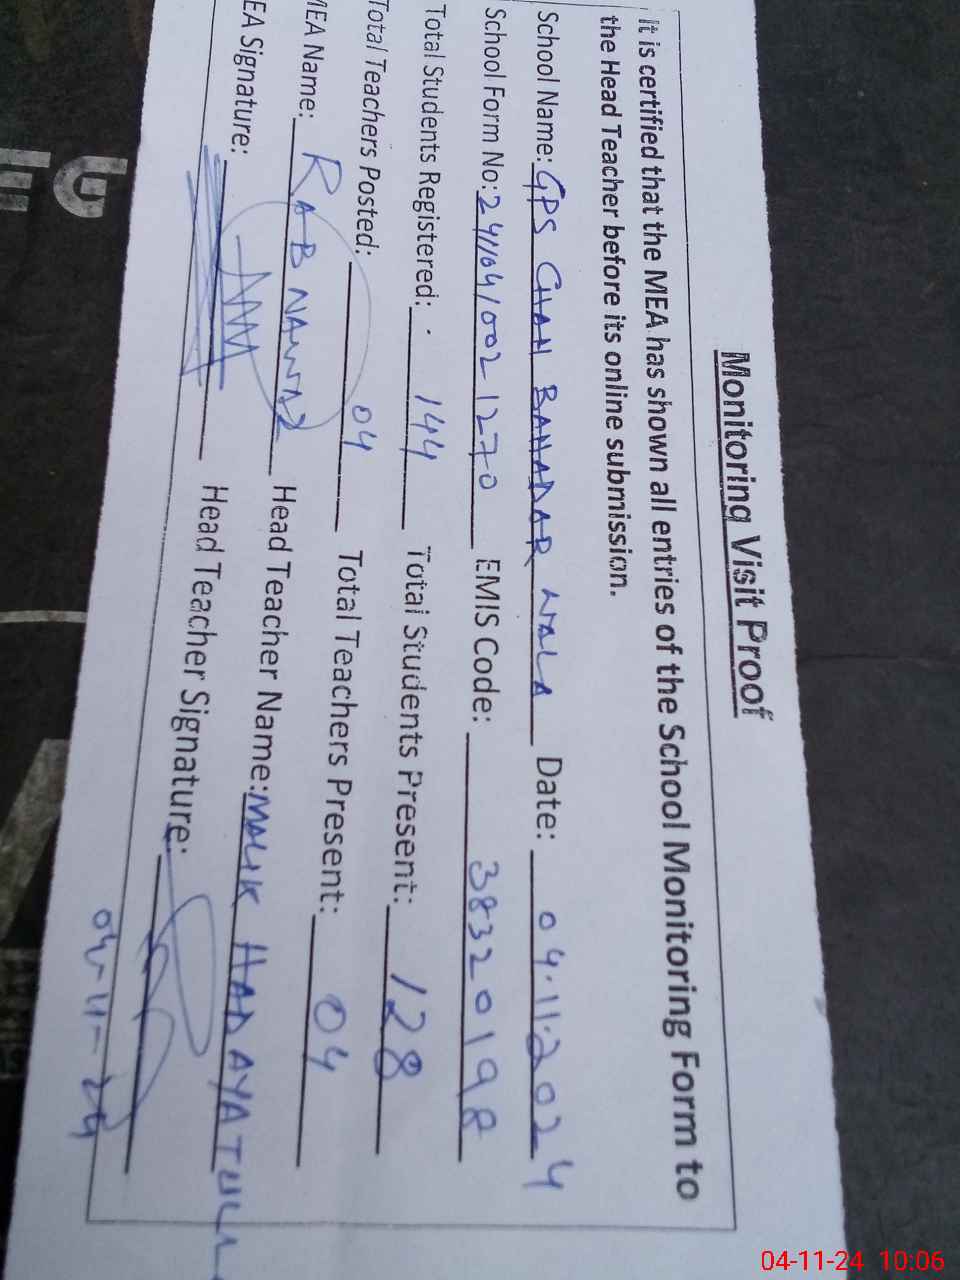 Monitoring Visit Proof
It is certified that the MEA has shown all entries of the School Monitoring Form to
the Head Teacher before its online submission.
School Name: GPS GHAN BAHADAR WALA Date: 04.11.2024
School Form No: 241104/002 1270 EMIS Code: 38320198
Total Students Registered: 144 Total Students Present: 128
Total Teachers Posted: 04 Total Teachers Present: 04
MEA Name: RAB NAWAZ Head Teacher Name: MALIK HADAYATULL
EA Signature: Head Teacher Signature:
04-11-24
04-11-24 10:06